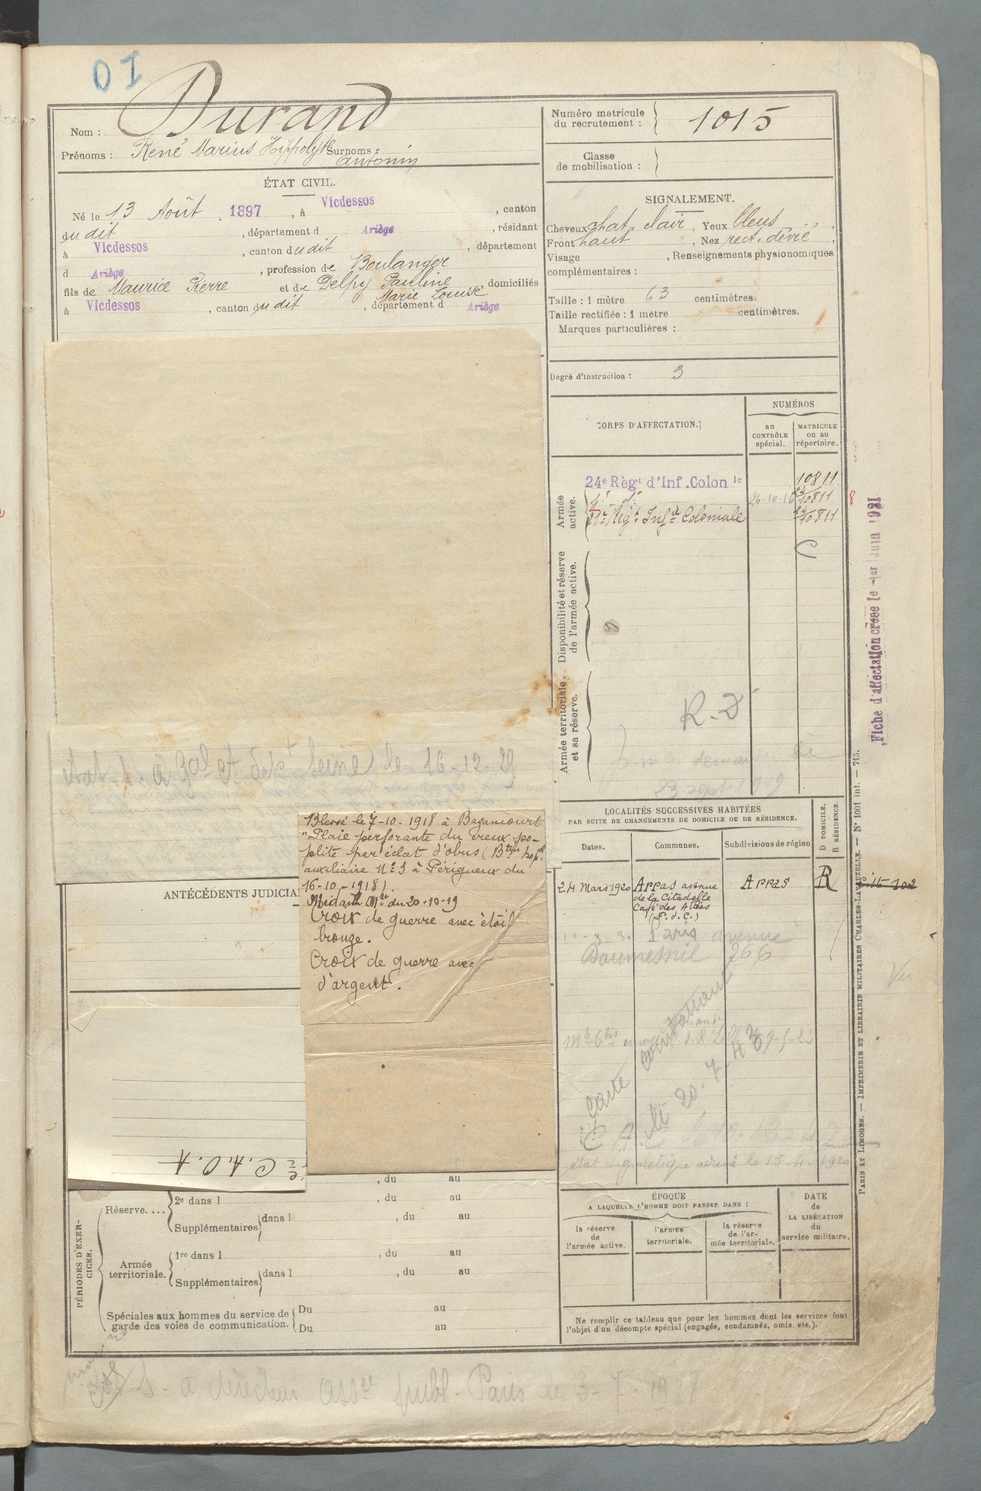 01
Nom : Durand
Prénoms : René Marius Hippolyte Surnoms :
Antonin
ÉTAT CIVIL.
Né le 13 Août , 1897 , à Vicdessos , canton
du dit , département d Ariège , résidant
à Vicdessos , canton du dit , département
d Ariège , profession de Boulanger
fils de Maurice Pierre et de Delpy Pauline domiciliés
Marie Louise
à Vicdessos , canton du dit , département d Ariège
Numéro matricule
du recrutement : 1015
Classe
de mobilisation :
SIGNALEMENT.
Cheveux chat. clair , Yeux bleus ,
Front haut , Nez rect. dévié ,
Visage , Renseignements physionomiques
complémentaires :
Taille : 1 mètre 63 centimètres.
Taille rectifiée : 1 mètre centimètres.
Marques particulières :
Degré d'instruction : 3
CORPS D'AFFECTATION.
NUMÉROS
au
CONTRÔLE
spécial.
MATRICULE
ou au
répertoire.
Armée
active.
24e Régt d'Inf. Colon le 10811
26-10-16 10811
Régt Infie Coloniale 10811
Disponibilité et réserve
de l'armée active.
Armée territoriale
et sa réserve.
R-D
Fiche d'affectation créée le 1er Juin 1931
à Gal et dépt Seine le 16-12-29
Blessé le 7-10-1918 à Bazancourt
"Plaie perforante du creux po-
plité par éclat d'obus (Btin hopal
auxiliaire N° 3 à Périgueux du
16-10-1918).
Médaille Mre du 20-10-19
Croix de guerre avec étoil
bronze.
Croix de guerre avec
d'argent.
ANTÉCÉDENTS JUDICIAI
LOCALITÉS SUCCESSIVES HABITÉES
PAR SUITE DE CHANGEMENTS DE DOMICILE OU DE RÉSIDENCE.
Dates.
Communes.
Subdivisions de région
D DOMICILE.
R RÉSIDENCE.
24 Mars 1920 Arras avenue Arras R
de la Citadelle
Café des Alliés
(P. d. C.)
Paris avenue
Daumesnil 266
Carte
le 20.7.43
état signalétique adressé le 15-4-1920
C.A.O.A
PÉRIODES D'EXER-
CICES.
, du au
Réserve.... 2e dans l , du au
Supplémentaires dans l , du au
Armée
territoriale. 1re dans l , du au
Supplémentaires dans l , du au
Spéciales aux hommes du service de
garde des voies de communication. Du au
Du au
ÉPOQUE
A LAQUELLE L'HOMME DOIT PASSER DANS :
la réserve
de
l'armée active.
l'armée
territoriale.
la réserve
de l'ar-
mée territoriale.
DATE
de
LA LIBÉRATION
du
service militaire.
Ne remplir ce tableau que pour les hommes dont les services font
l'objet d'un décompte spécial (engagés, condamnés, omis, etc.).
PARIS ET LIMOGES. — IMPRIMERIE ET LIBRAIRIE MILITAIRES CHARLES-LAVAUZELLE. — N° 1001 int. — 715.
à directeur assce publ. Paris le 3-7-1928